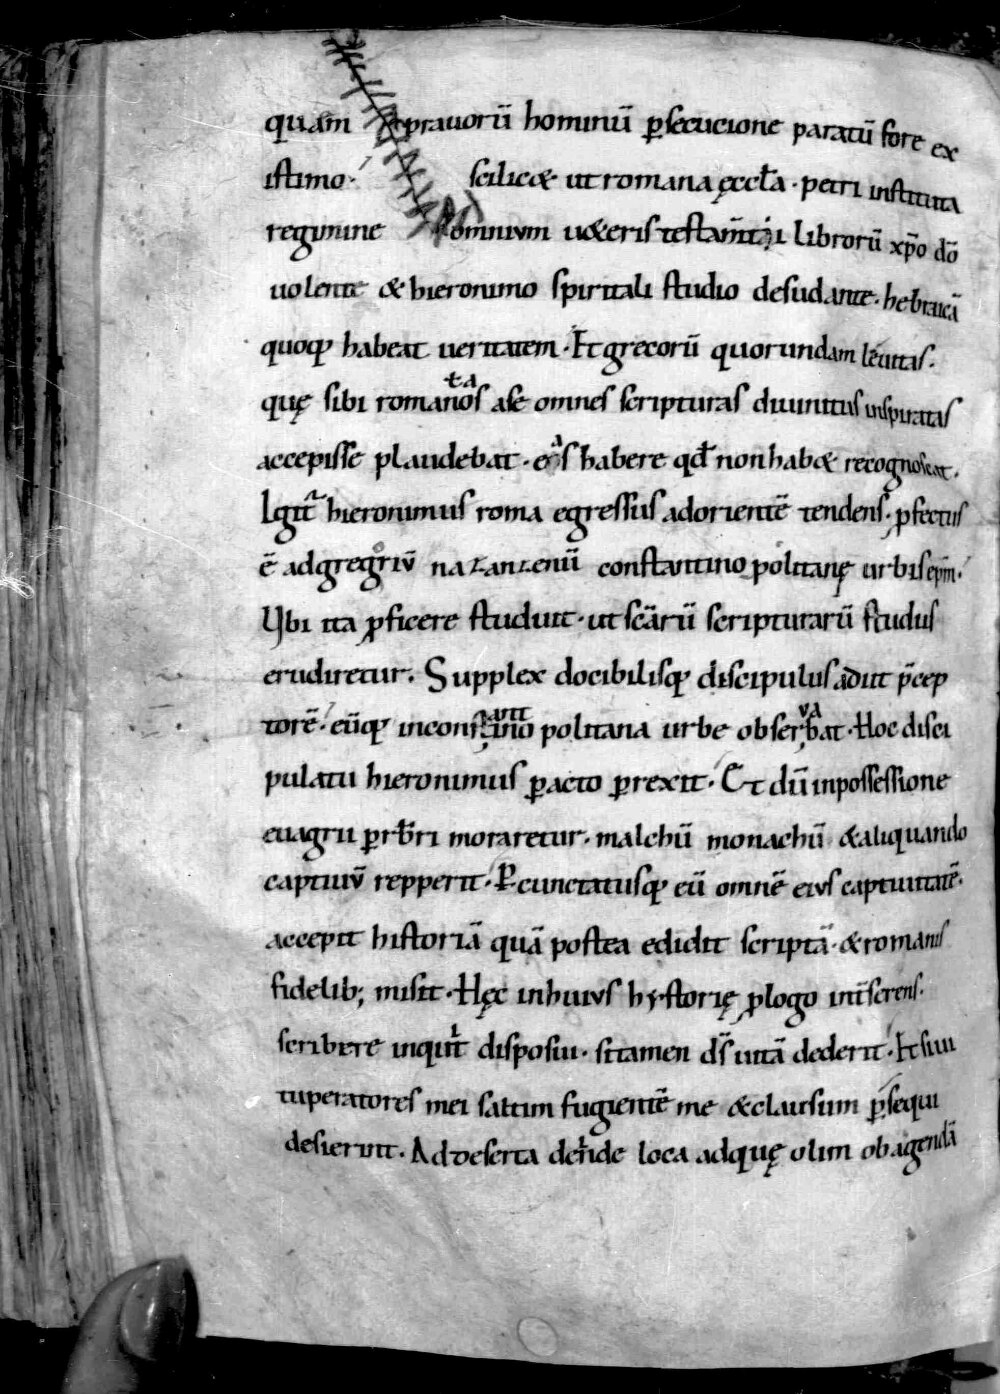 quam prauorū hominū p̱secucione paratū fore ex
istimo· scilic& ut romana ęccƚa · petri instituta
regimine omnium u&eris testam̄ti librorū xp̄o dō
uolente & hieronimo spiritali studio desudante · hebraicā
quoq; habeat ueritatem · Et grecorū quorundam leuitas·
quę sibi romanos a se omnes scripturas diuinitus inspiratas
accepisse plaudebat · habere qđ non hab& recognoscat·
Igit᷑ hieronimus roma egressus ad orientē tendens· ꝓfectus
ē ad gregoriū nazanzenū constantinopolitanę urbis ep̄m·
Ubi ita ꝓficere studuit · ut sc̄arū scripturarū studiis
erudiretur· Supplex docibilisq; discipulus adiit p̄cep
torē· eūq; in constantinopolitana urbe obseruabat · Hoc disci
pulatu hieronimus p̱acto p̱rexit · Et dū in possessione
euagrii p̱rb̄ri moraretur · malchū monachū & aliquando
captiuū repperit · P̱cunctatusq; eū omnē eius captiuitatē·
accepit historiā quā postea edidit scriptā · & romanis
fidelib; misit · Hęc in huius hystorię ꝓlogo int̄serens·
scribere inquit disposui · si tamen ds̄ uitā dederit · Et si ui
tuperatores mei saltim fugientē me & clausum p̱sequi
desierint · Ad deserta deinde loca ad quę olim ob agendā